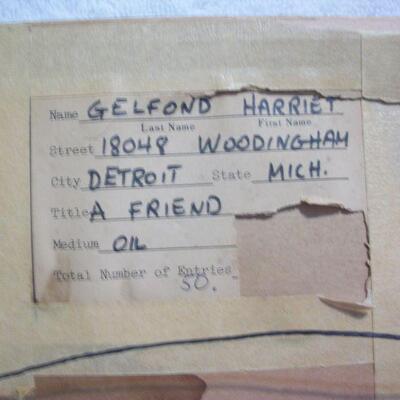 Name GELFOND HARRIET
Last Name First Name
Street 18048 WOODINGHAM
City DETROIT State MICH.
Title A FRIEND
Medium OIL
Total Number of Entries
50.